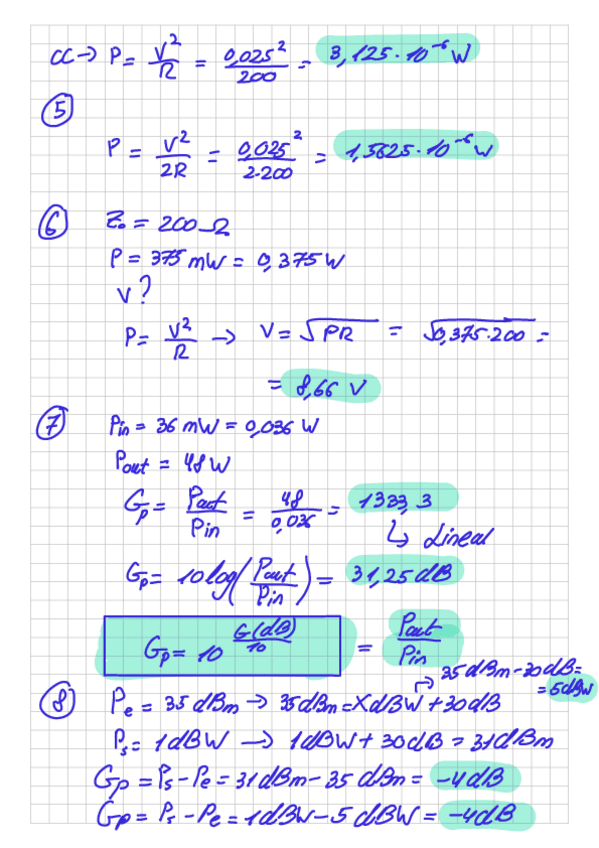 CC → P = V²/R = 0,025²/200 = 3,125·10⁻⁶ W
⑤
P = V²/2R = 0,025²/2·200 = 1,5625·10⁻⁶ W
⑥ Z₀ = 200 Ω
P = 375 mW = 0,375 W
V?
P = V²/R → V = √PR = √0,375·200 =
= 8,66 V
⑦ Pin = 36 mW = 0,036 W
Pout = 48 W
Gp = Pout/Pin = 48/0,036 = 1333,3
↳ Lineal
Gp = 10 log(Pout/Pin) = 31,25 dB
Gp = 10^(G(dB)/10) = Pout/Pin
35 dBm - 30 dB =
= 5 dBW
⑧ Pe = 35 dBm → 35 dBm = X dBW + 30 dB
Ps = 1 dBW → 1 dBW + 30 dB = 31 dBm
Gp = Ps - Pe = 31 dBm - 35 dBm = -4 dB
Gp = Ps - Pe = 1 dBW - 5 dBW = -4 dB